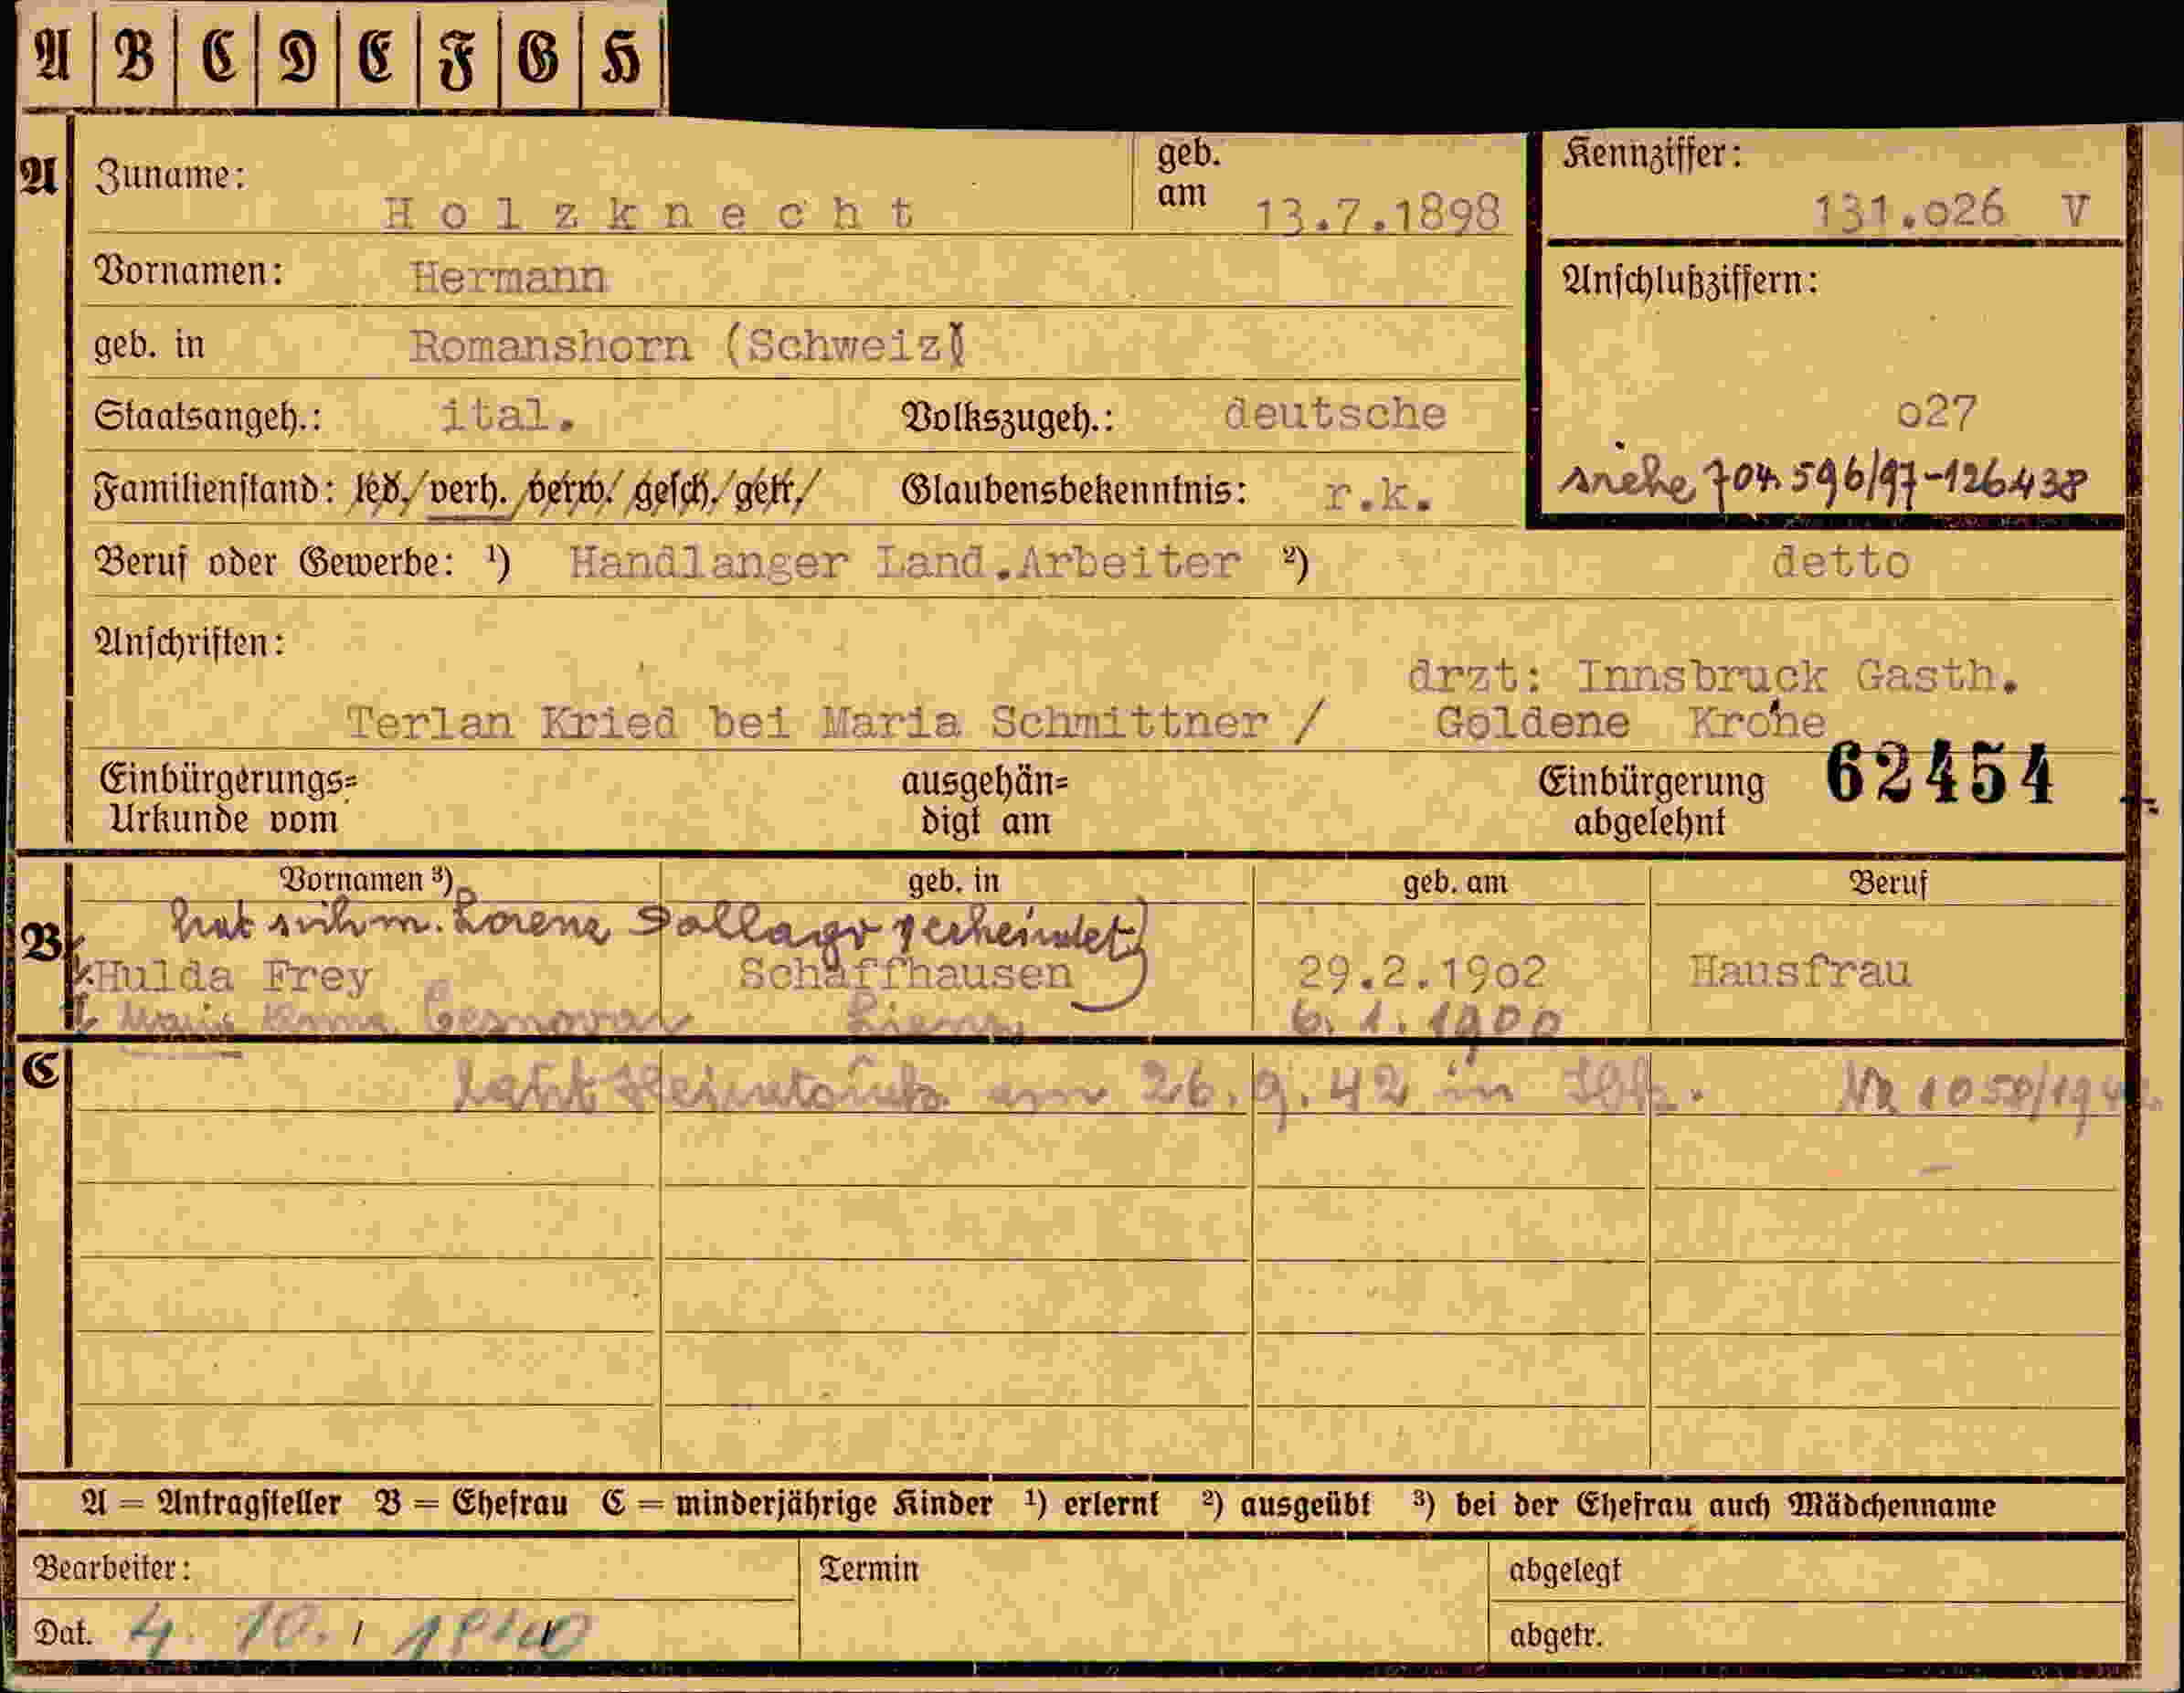 A B C D E F G H
A Zuname: Holzknecht geb. am 13.7.1898
Kennziffer: 131.o26 V
Vornamen: Hermann
geb. in Romanshorn (Schweiz)
Anschlußziffern:
o27
siehe 704.596/97-126438
Staatsangeh.: ital. Volkszugeh.: deutsche
Familienstand: led./verh./verw./gesch./getr./ Glaubensbekenntnis: r.k.
Beruf oder Gewerbe: ¹) Handlanger Land.Arbeiter ²) detto
Anschriften:
drzt: Innsbruck Gasth.
Terlan Kried bei Maria Schmittner / Goldene Krone
Einbürgerungs=
Urkunde vom
ausgehän=
digt am
Einbürgerung
abgelehnt
62454
Vornamen ³) geb. in geb. am Beruf
hat sich m. Lorenz Dallago verheiratet
B Hulda Frey Schaffhausen 29.2.19o2 Hausfrau
Maria Anna Lienz 6.1.1900
C laut am 26.9.42 in Nr 1058/1942
A = Antragsteller B = Ehefrau C = minderjährige Kinder ¹) erlernt ²) ausgeübt ³) bei der Ehefrau auch Mädchenname
Bearbeiter: Termin abgelegt
Dat. 4. 10. / 1940 abgetr.